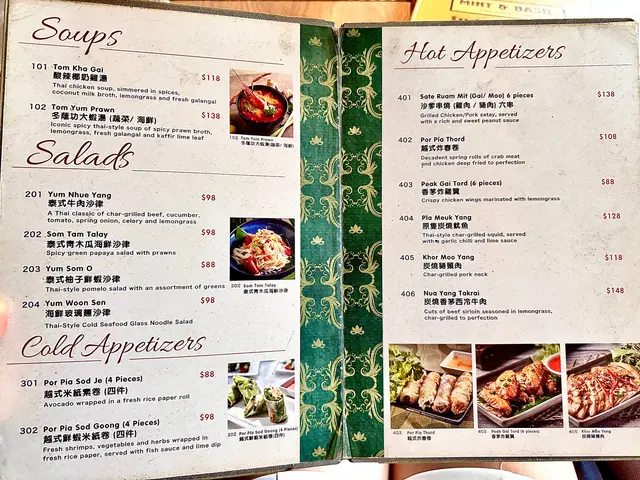 MINT & BASIL
Soups
101 Tom Kha Gai $118
酸辣椰奶雞湯
Thai chicken soup, simmered in spices,
coconut milk broth, lemongrass and fresh galangal
102 Tom Yum Prawn $138
冬蔭功大蝦湯 (蔬菜/ 海鮮)
Iconic spicy thai-style soup of spicy prawn broth,
lemongrass, fresh galangal and kaffir lime leaf
102 Tom Yum Prawn
冬蔭功大蝦湯(蔬菜/ 海鮮)
Salads
201 Yum Nhue Yang $98
泰式牛肉沙律
A Thai classic of char-grilled beef, cucumber,
tomato, spring onion, celery and lemongrass
202 Som Tam Talay $98
泰式青木瓜海鮮沙律
Spicy green papaya salad with prawns
203 Yum Som O $88
泰式柚子鮮蝦沙律
Thai-style pomelo salad with an assortment of greens
204 Yum Woon Sen $98
海鮮玻璃麵沙律
Thai-Style Cold Seafood Glass Noodle Salad
202 Som Tam Talay
泰式青木瓜海鮮沙律
Cold Appetizers
301 Por Pia Sod Je (4 Pieces) $88
越式米紙素卷 (四件)
Avocado wrapped in a fresh rice paper roll
302 Por Pia Sod Goong (4 Pieces) $98
越式鮮蝦米紙卷 (四件)
Fresh shrimps, vegetables and herbs wrapped in
fresh rice paper, served with fish sauce and lime dip
302 Por Pia Sod Goong (4 Pieces)
越式鮮蝦米紙卷(四件)
Hot Appetizers
401 Sate Ruam Mit (Gai/ Moo) 6 pieces $138
沙爹串燒 (雞肉 / 豬肉) 六串
Grilled Chicken/Pork satay, served
with a rich and sweet peanut sauce
402 Por Pia Thord $108
越式炸春卷
Decadent spring rolls of crab meat
and chicken deep fried to perfection
403 Peak Gai Tord (6 pieces) $88
香茅炸雞翼
Crispy chicken wings marinated with lemongrass
404 Pla Meuk Yang $128
原隻炭燒魷魚
Thai-style char-grilled squid, served
with garlic chilli and lime sauce
405 Khor Moo Yang $118
炭燒豬頸肉
Char-grilled pork neck
406 Nua Yang Takrai $148
炭燒香茅西冷牛肉
Cuts of beef sirloin seasoned in lemongrass,
char-grilled to perfection
402 Por Pia Thord
越式炸春卷
403 Peak Gai Tord (6 pieces)
香茅炸雞翼
405 Khor Moo Yang
炭燒豬頸肉